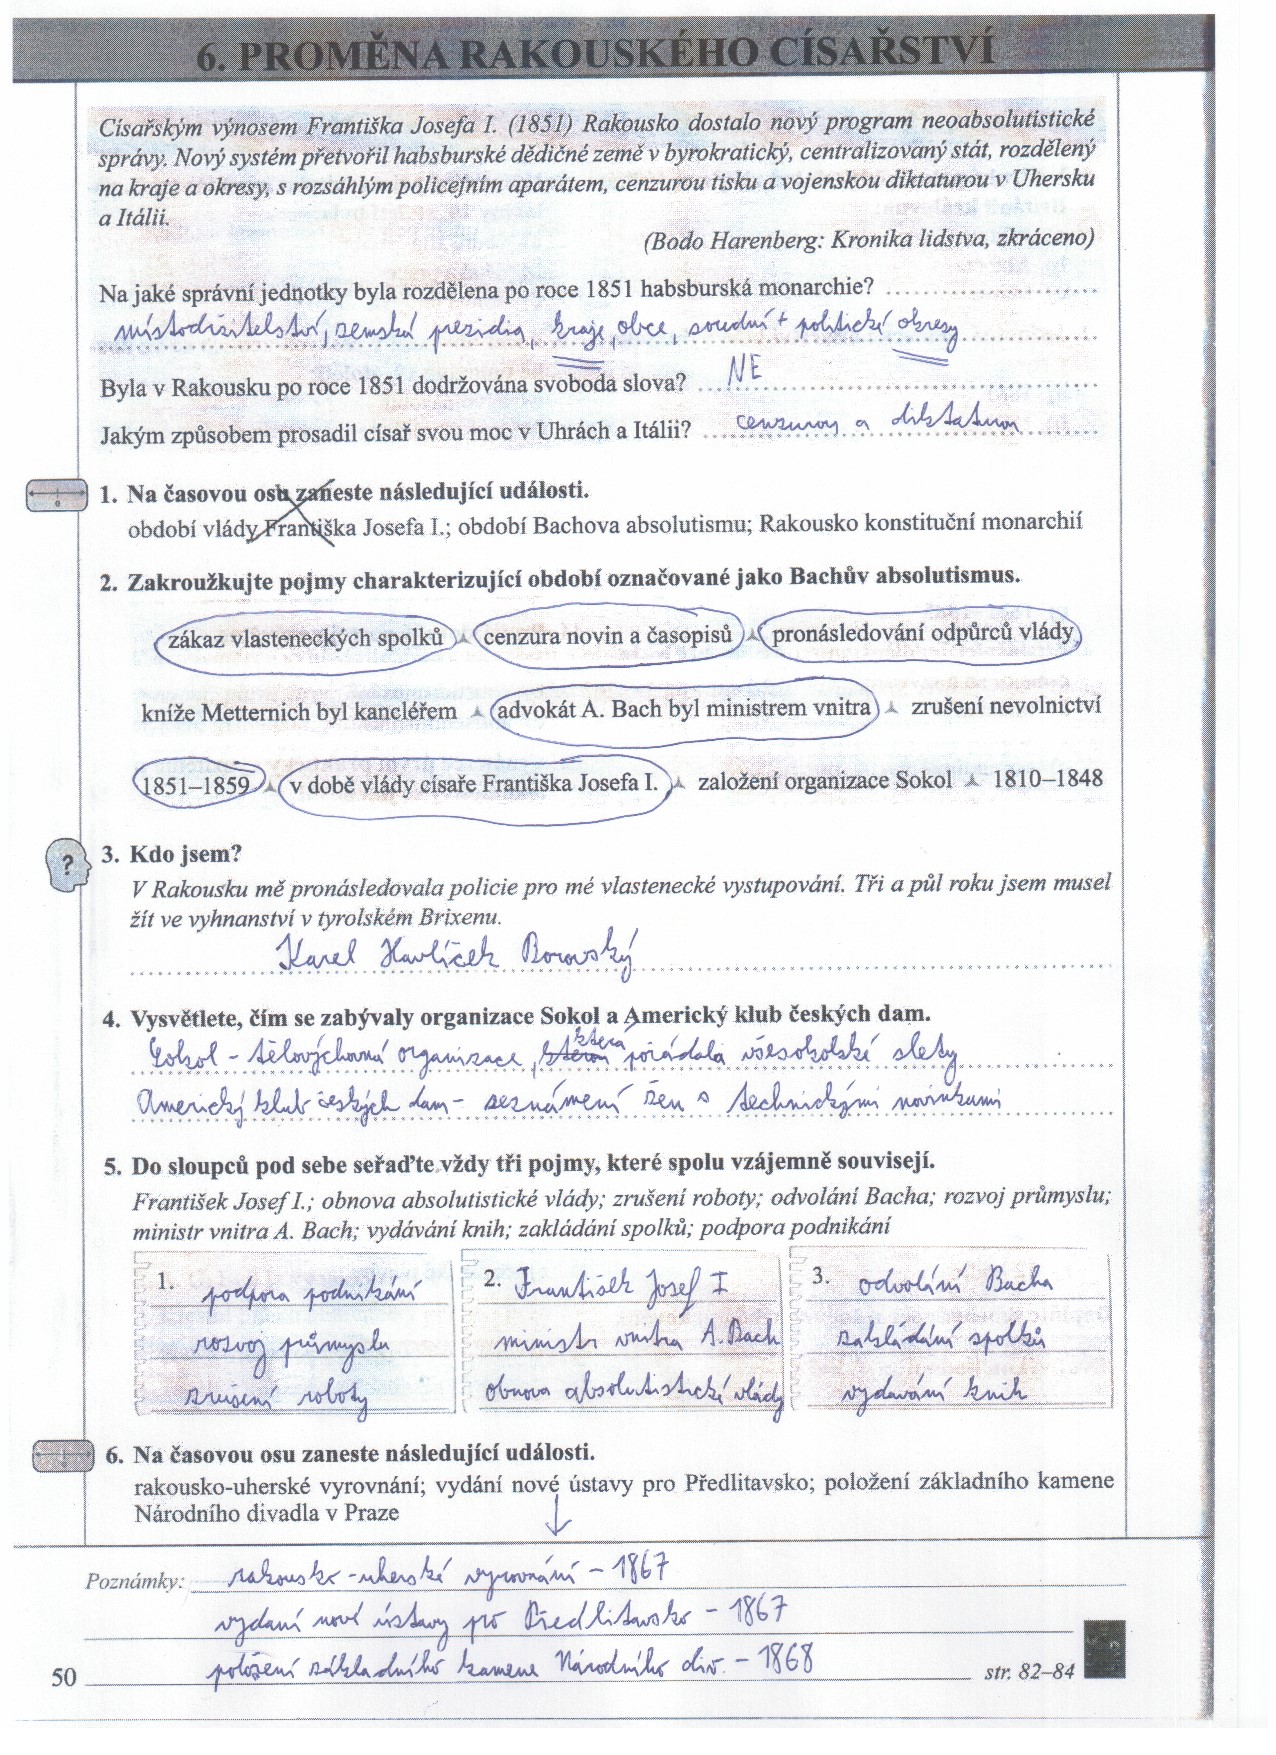 6. PROMĚNA RAKOUSKÉHO CÍSAŘSTVÍ
Císařským výnosem Františka Josefa I. (1851) Rakousko dostalo nový program neoabsolutistické
správy. Nový systém přetvořil habsburské dědičné země v byrokratický, centralizovaný stát, rozdělený
na kraje a okresy, s rozsáhlým policejním aparátem, cenzurou tisku a vojenskou diktaturou v Uhersku
a Itálii.
(Bodo Harenberg: Kronika lidstva, zkráceno)
Na jaké správní jednotky byla rozdělena po roce 1851 habsburská monarchie?
místodržitelství, zemská prezidia, kraje, obce, soudní + politické okresy
Byla v Rakousku po roce 1851 dodržována svoboda slova? NE
Jakým způsobem prosadil císař svou moc v Uhrách a Itálii? cenzurou a diktaturou
1. Na časovou osu zaneste následující události.
období vlády Františka Josefa I.; období Bachova absolutismu; Rakousko konstituční monarchií
2. Zakroužkujte pojmy charakterizující období označované jako Bachův absolutismus.
zákaz vlasteneckých spolků cenzura novin a časopisů pronásledování odpůrců vlády
kníže Metternich byl kancléřem advokát A. Bach byl ministrem vnitra zrušení nevolnictví
1851–1859 v době vlády císaře Františka Josefa I. založení organizace Sokol 1810–1848
?
3. Kdo jsem?
V Rakousku mě pronásledovala policie pro mé vlastenecké vystupování. Tři a půl roku jsem musel
žít ve vyhnanství v tyrolském Brixenu.
Karel Havlíček Borovský
4. Vysvětlete, čím se zabývaly organizace Sokol a Americký klub českých dam.
Sokol - tělovýchovná organizace, která pořádala všesokolské slety
Americký klub českých dam - seznámení žen s technickými novinkami
5. Do sloupců pod sebe seřaďte vždy tři pojmy, které spolu vzájemně souvisejí.
František Josef I.; obnova absolutistické vlády; zrušení roboty; odvolání Bacha; rozvoj průmyslu;
ministr vnitra A. Bach; vydávání knih; zakládání spolků; podpora podnikání
1. podpora podnikání
rozvoj průmyslu
zrušení roboty
2. František Josef I
ministr vnitra A. Bach
obnova absolutistické vlády
3. odvolání Bacha
zakládání spolků
vydávání knih
6. Na časovou osu zaneste následující události.
rakousko-uherské vyrovnání; vydání nové ústavy pro Předlitavsko; položení základního kamene
Národního divadla v Praze
Poznámky: rakousko-uherské vyrovnání - 1867
vydaní nové ústavy pro Předlitavsko - 1867
položení základního kamene Národního div. - 1868
50
str. 82–84